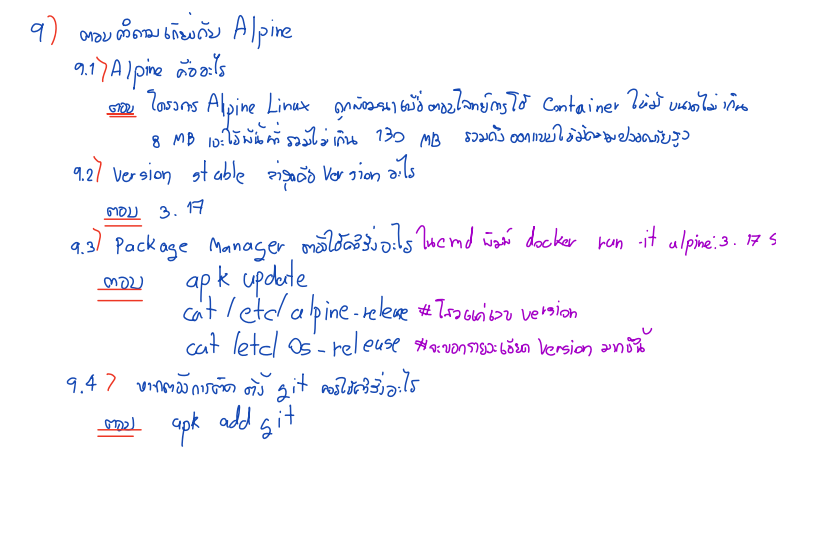 9) ตอบคำถามเกี่ยวกับ Alpine
9.1) Alpine คืออะไร
ตอบ โครงการ Alpine Linux ถูกพัฒนาเพื่อตอบโจทย์การใช้ Container ให้มีขนาดไม่เกิน
8 MB และใช้พื้นที่รวมไม่เกิน 130 MB รวมถึงออกแบบให้มีความปลอดภัยสูง
9.2) Version stable ล่าสุดคือ Version อะไร
ตอบ 3.17
9.3) Package Manager ตัวนี้ใช้คำสั่งอะไร ใน cmd พิมพ์ docker run -it alpine:3.17 s
ตอบ apk update
cat /etc/alpine-releve # โชว์แค่เลข version
cat /etc/os-release #จะบอกรายละเอียด Version มากขึ้น
9.4) หากต้องการติดตั้ง git ควรใช้คำสั่งอะไร
ตอบ apk add git